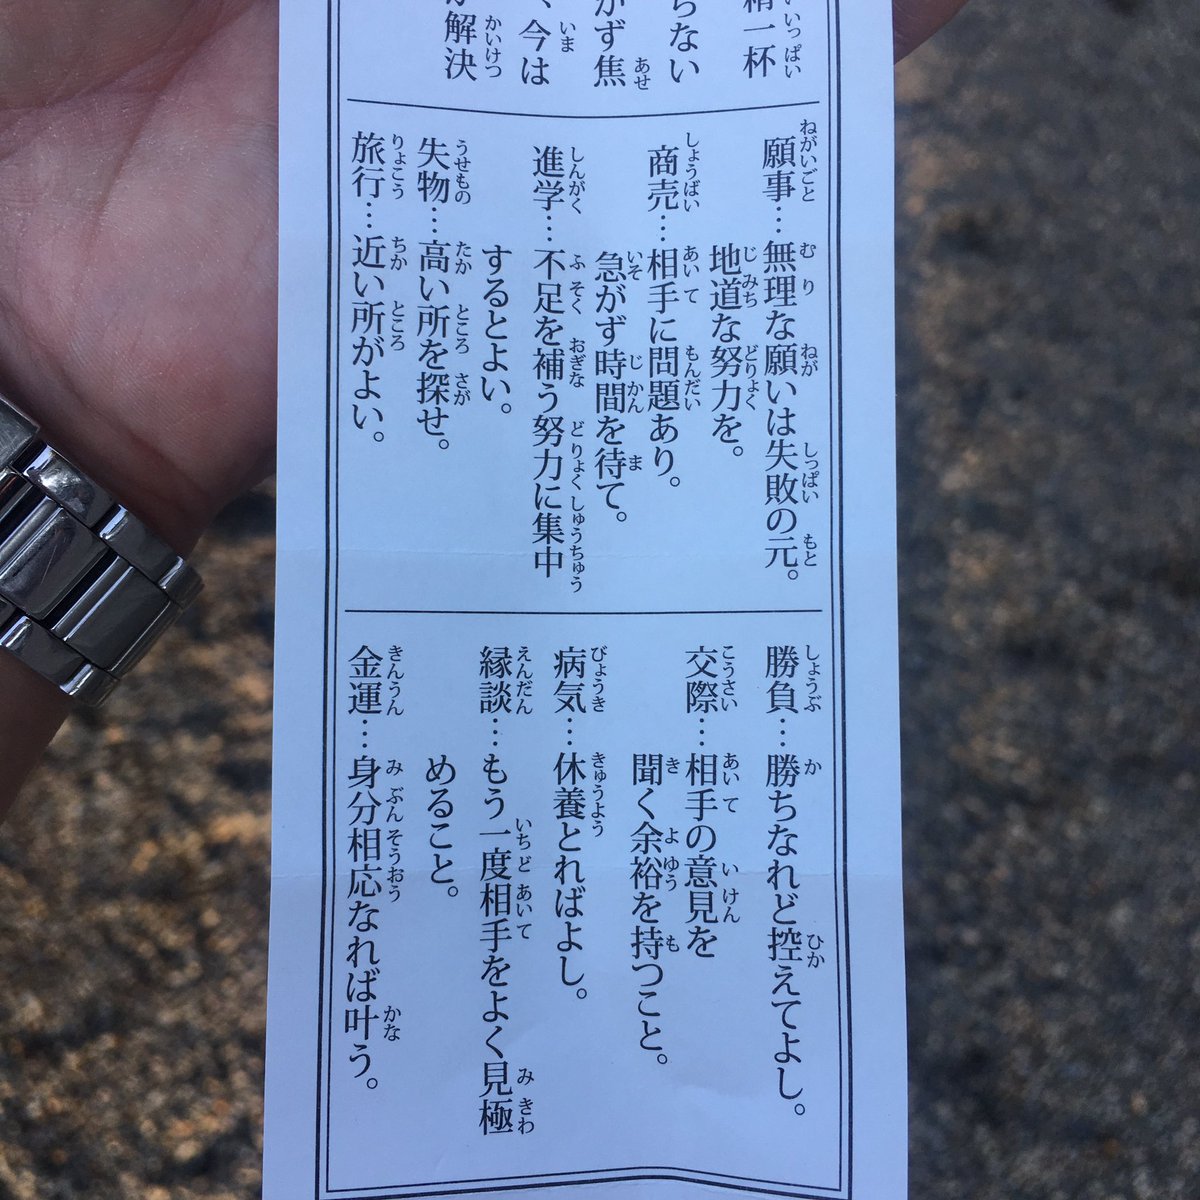 精一杯
らない
がず焦
く今は
が解決
願事…無理な願いは失敗の元。
地道な努力を。
商売…相手に問題あり。
急がず時間を待て。
進学…不足を補う努力に集中
するとよい。
失物…高い所を探せ。
旅行…近い所がよい。
勝負…勝ちなれど控えてよし。
交際…相手の意見を
聞く余裕を持つこと。
病気…休養とればよし。
縁談…もう一度相手をよく見極
めること。
金運…身分相応なれば叶う。